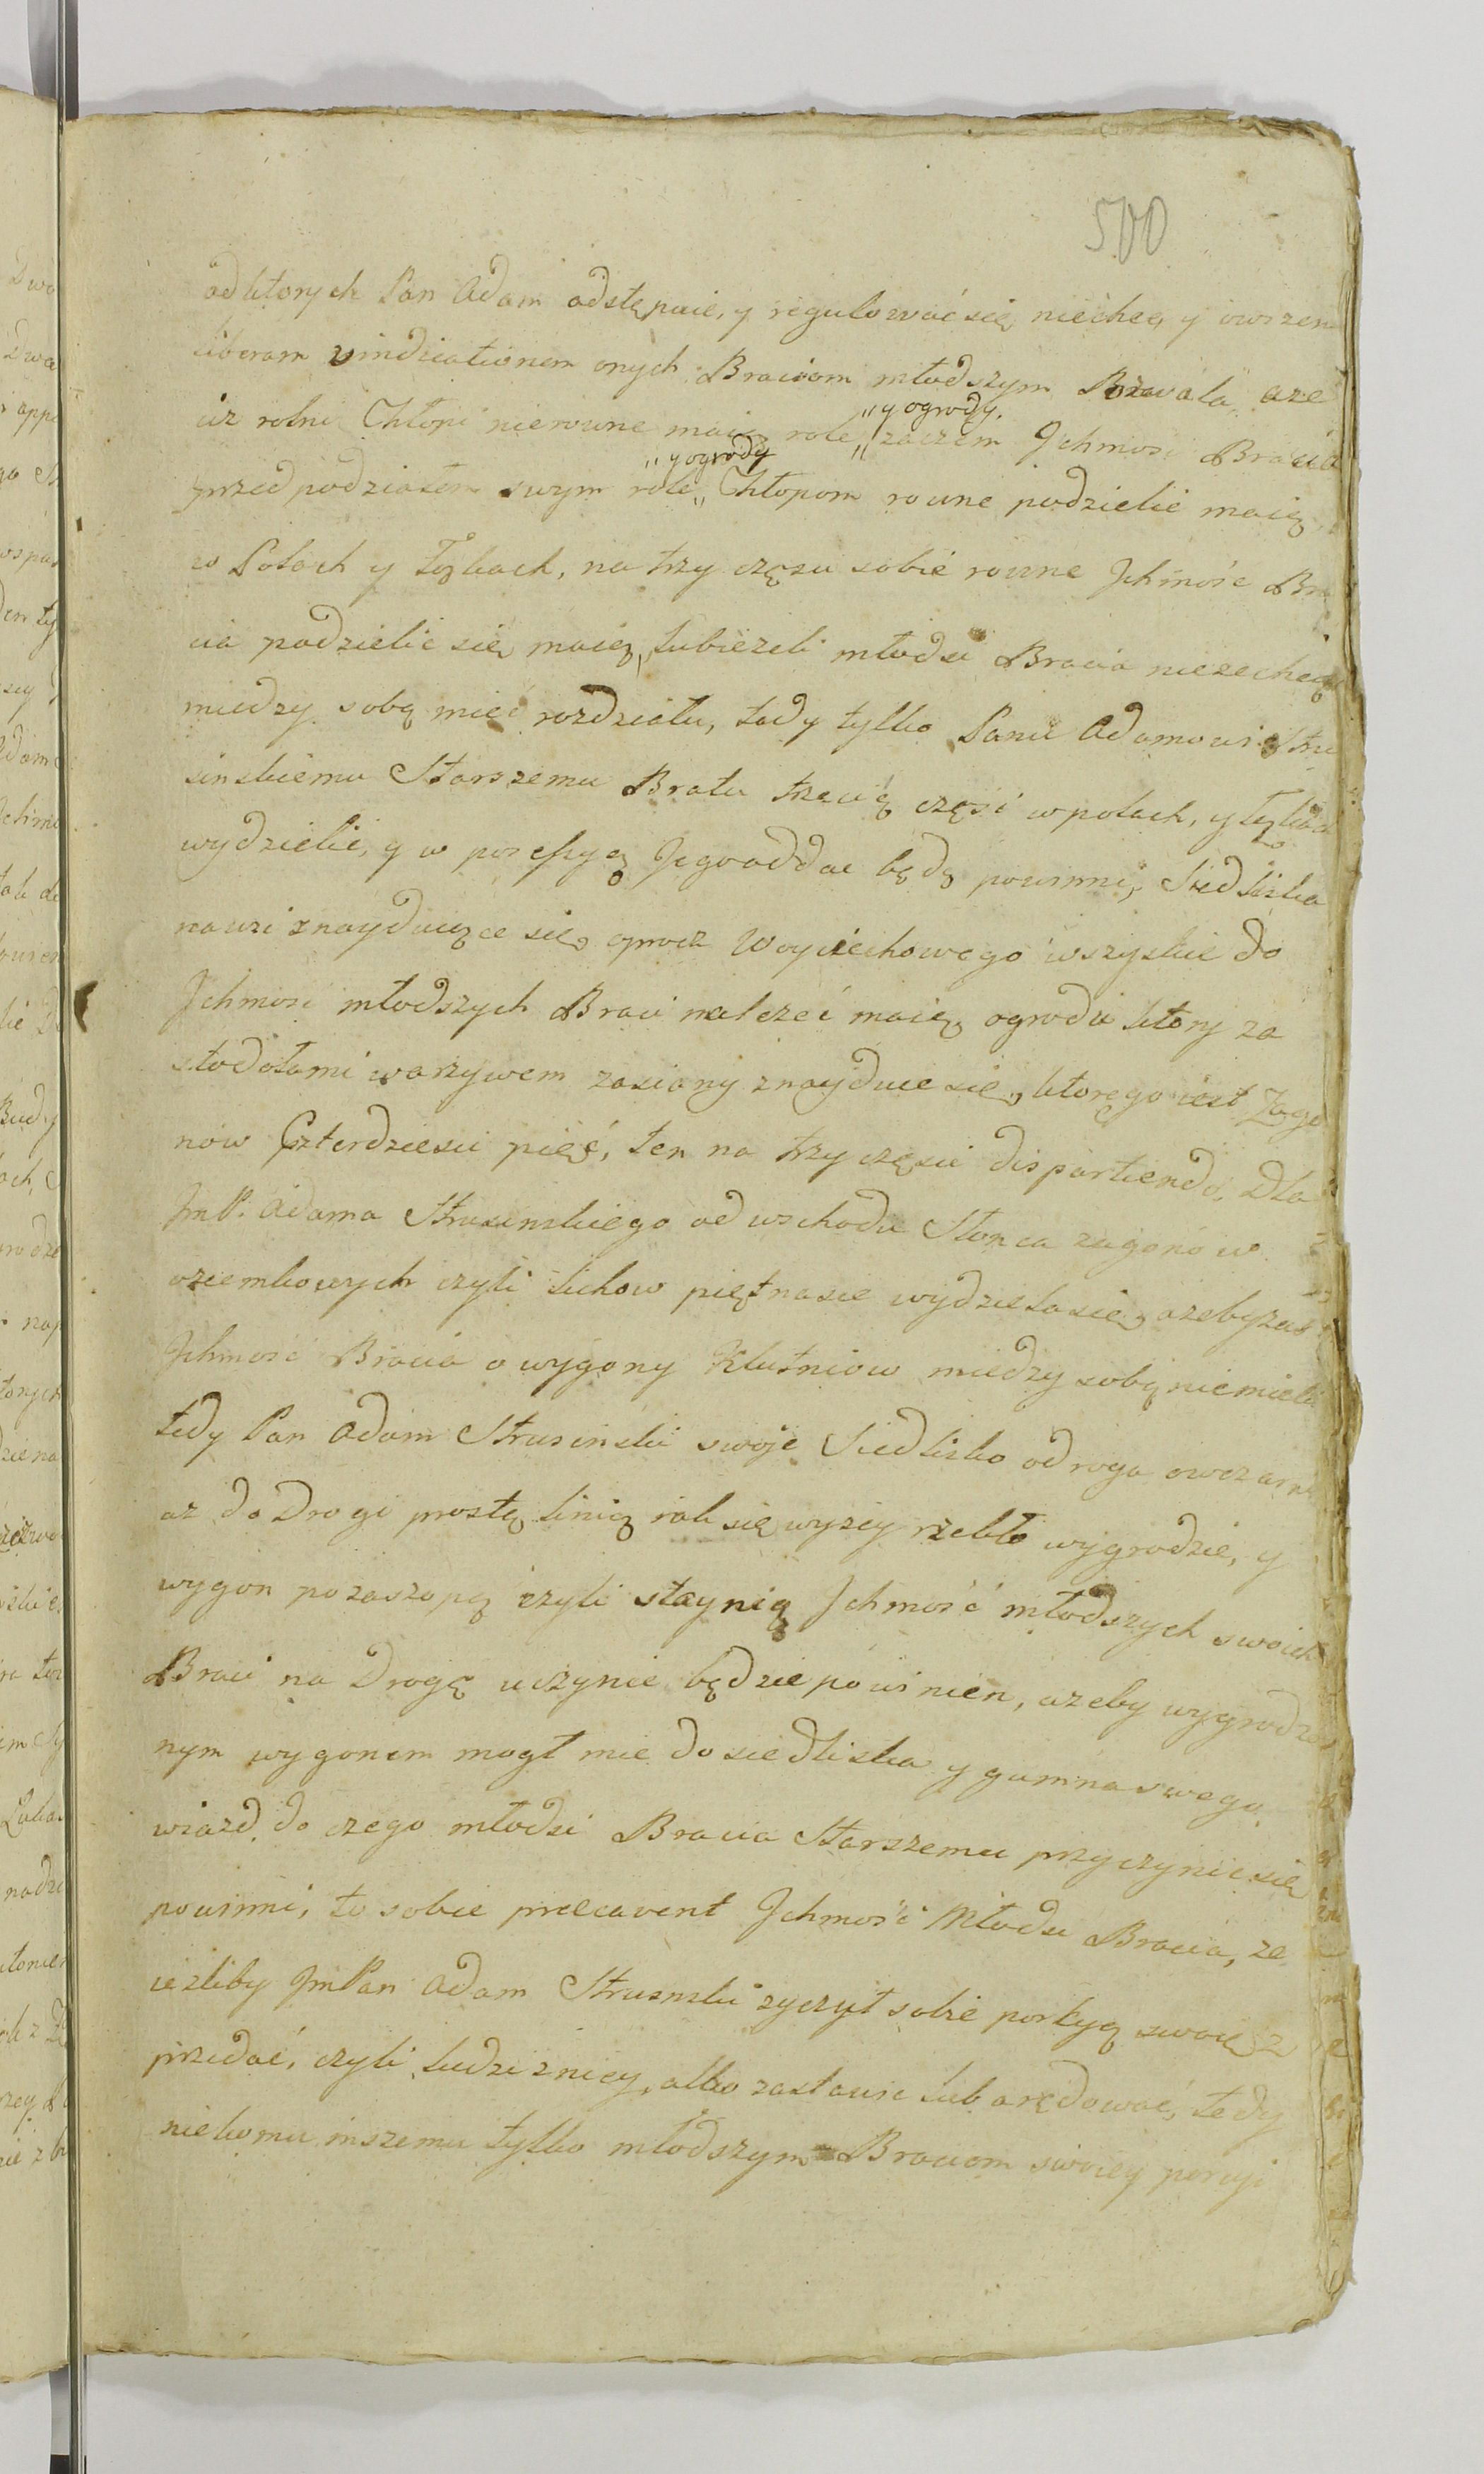 500
od ktorych Pan Adam odstępuie, y regulować się niechcę, y owszem
liberam vindicationem onych Braciom młodszym Pozwala, aże
iż rolni Chłopi nierowne maią role „y ogrody. zaczem Ichmosc Bracia
przed podziałem swym role „y ogrody Chłopom rowne podzielic maią,
w Polach y Łąkach, na trzy częsci sobie rowne Ichmośc Bra
cia podzielic się maią, lubieżeli młodsi Bracia niezechcą
miedzy sobą mieć rozdziału, tedy tylko Panu Adamowi Stru
sinskiemu Starszemu Bratu trzecią częsć w polach, y łąkach
wydzielic, y w possessyą Jego oddac będą powinni, Siedliska
na wsi znayduiące się, oprocz Woyciechowego wszyskie do
Ichmosc młodszych Braci należeć maią, ogrodu ktory za
stodołami warzywem zasiany znayduie się, ktorego iest Zago
now Czterdziesci pięć, ten na trzy częsci dispartiendo, Dla
ImP. Adama Strusinskiego od wschodu Słonca zagonow
oziembowych czyli lichow piętnascie wydziela się, azeby zas
Ichmosć Bracia o wygony Kłutniow miedzy sobą niemieli
tedy Pan Adam Strusinski swoje Siedlisko od roga owczarni
az do Drogi prostą linią iak się wyzey rzekło wygrodzi, y
wygon poza szopą czyli staynią Ichmość młodszych swoich
Braci na Drogę uczynic będzie powinien, azeby wygrodzo
nym wygonem mogł miec do siedliska y gumna swego
wiazd, do czego młodsi Bracia Starszemu przyczynic się
powinni, to sobie precavent Ichmość Młodsi Bracia, ze
iezliby ImPan Adam Strusinski zyczył sobie portyą swoię
przedać, czyli ludzi z niey, albo zastawic lub arędować, tedy
niekomu inszemu tylko młodszym Braciom swoiey porcyi